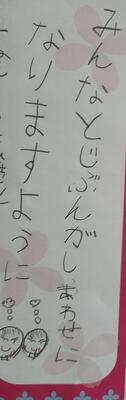 みんなとじぶんがしあわせに
なりますように